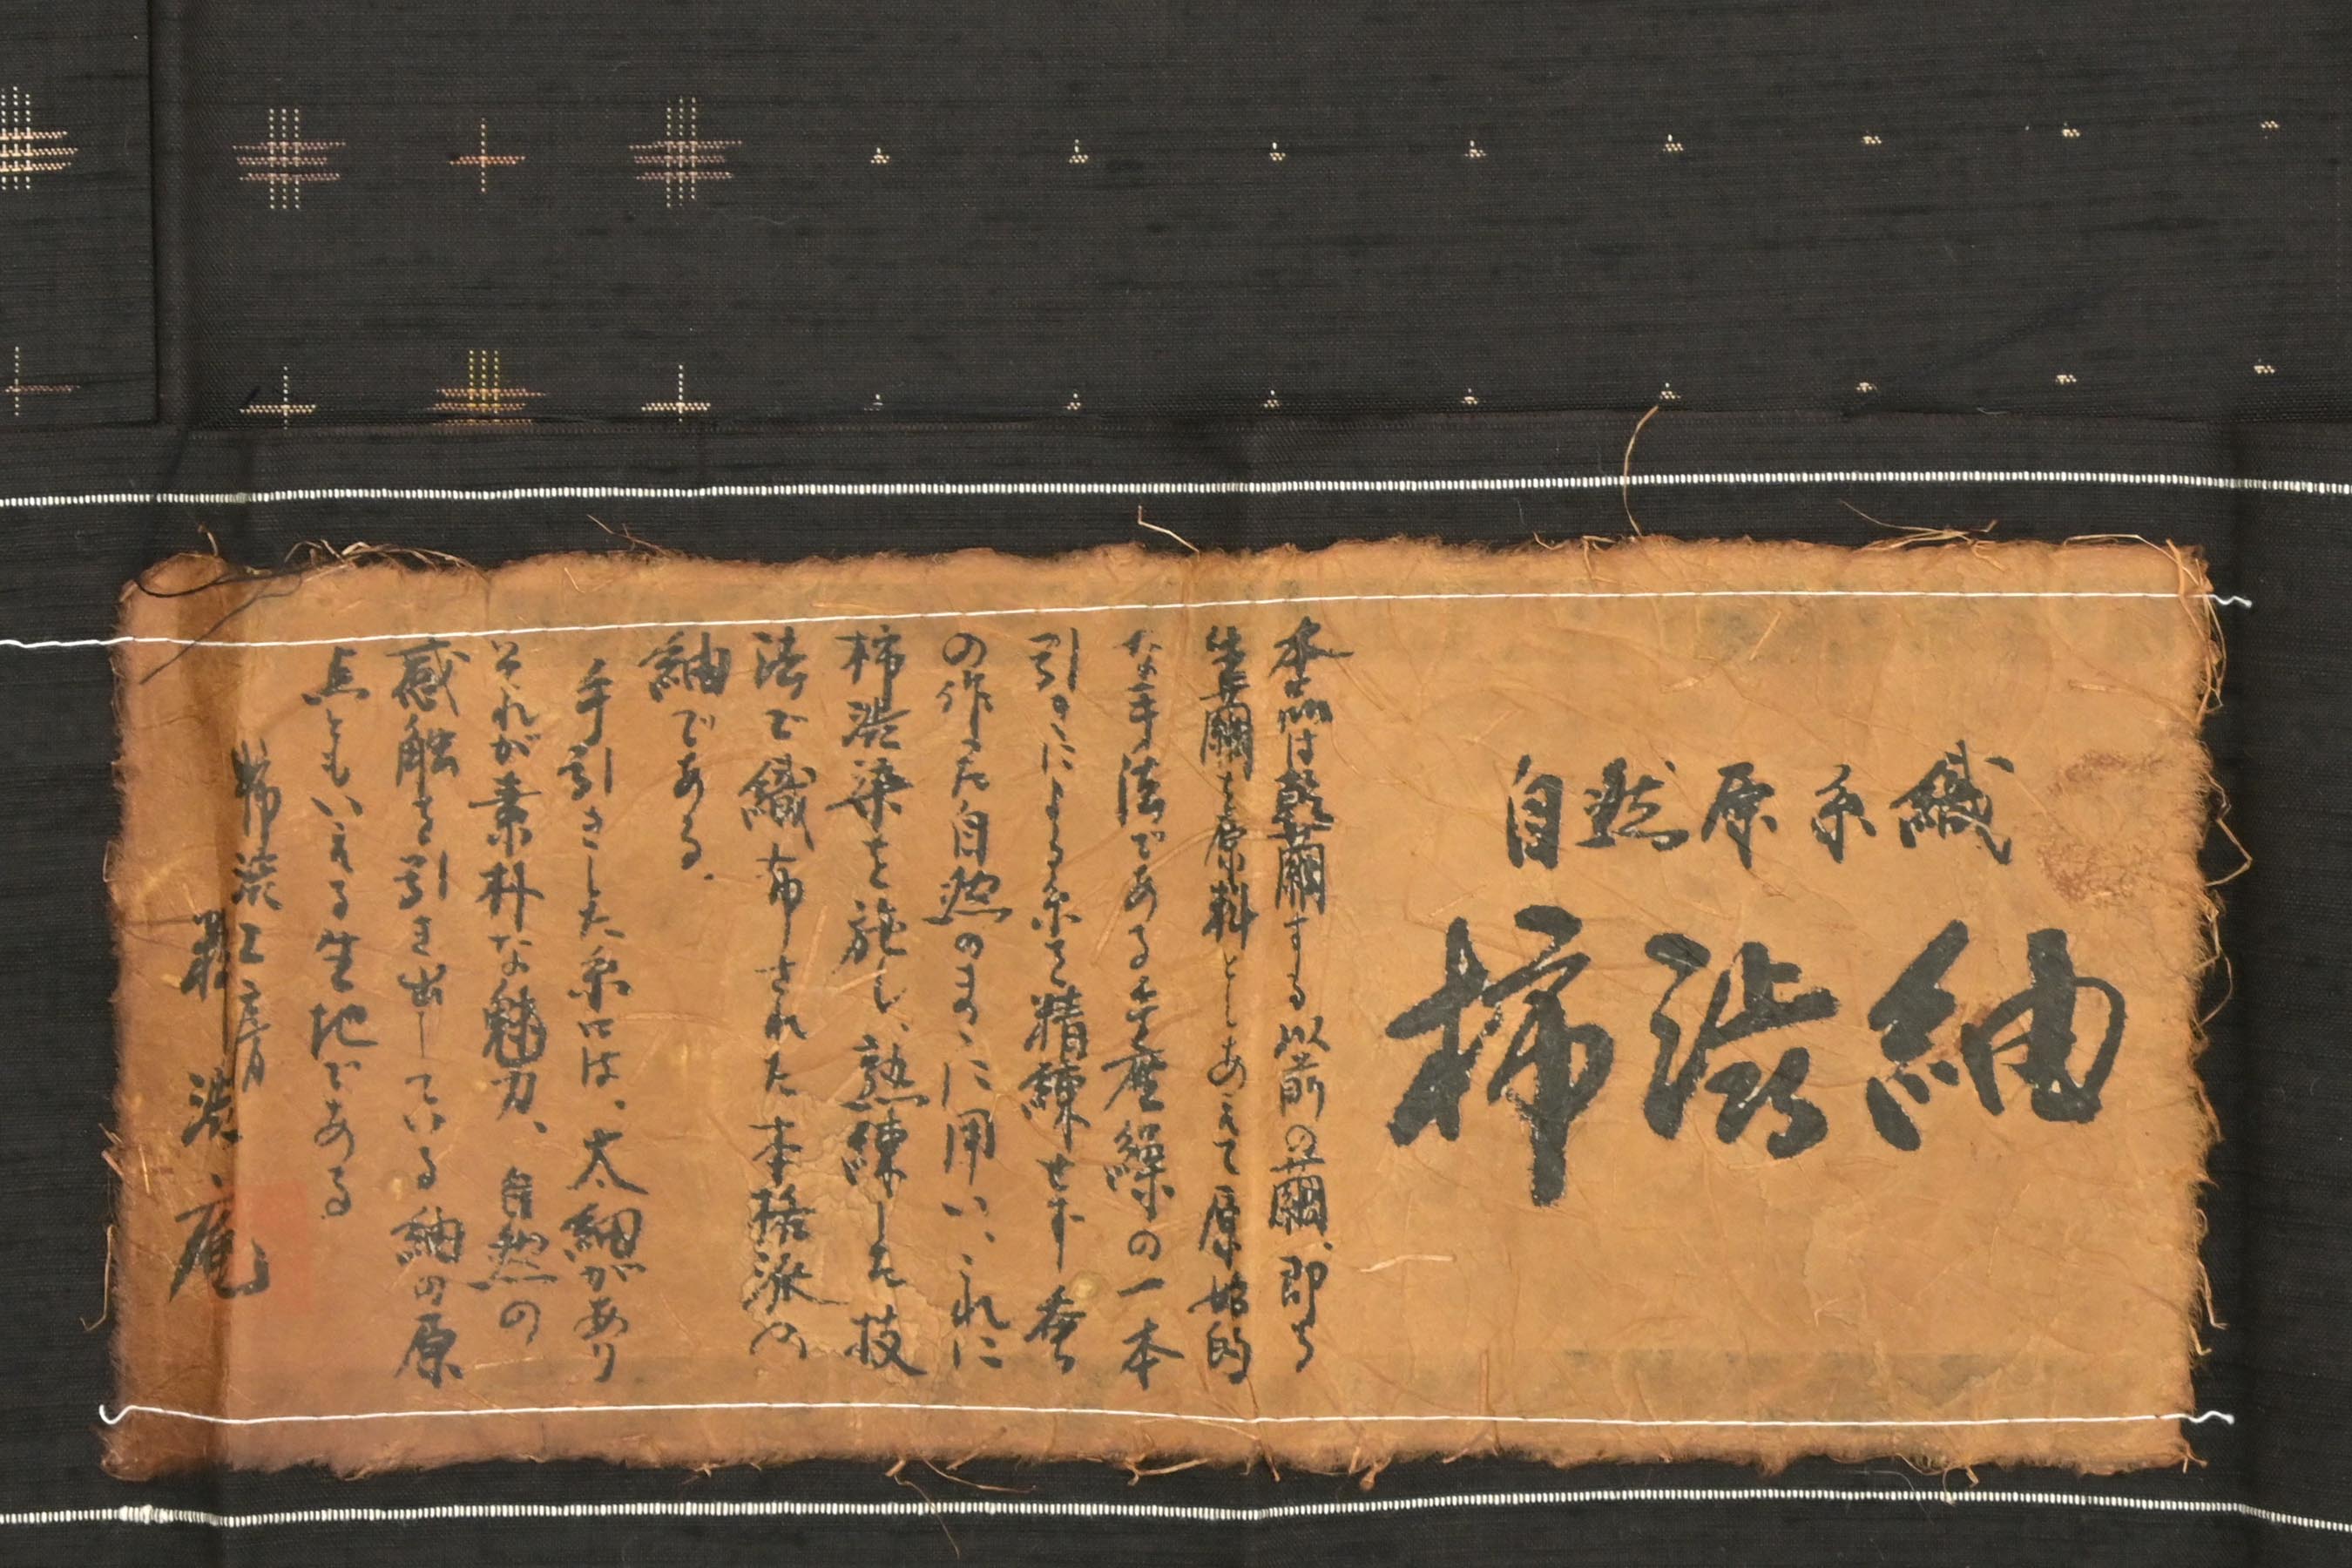 自然原糸織
柿渋紬
本品は乾繭する以前の繭、即ち
生繭を原料としあえて原始的
な手法である手座繰の一本
引きによる糸を精練せず蚕
の作った自然のまゝに用い、これに
柿渋染を施し、熟練した技
法で織布された本格派の
紬である。
手引きした糸には、太細があり
それが素朴な魅力、自然の
感触を引き出している紬の原
点ともいえる生地である
柿渋工房
渋庵